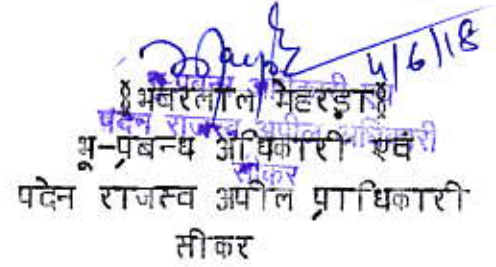 4/6/18
भू-प्रबन्ध अधिकारी एवं
पदेन राजस्व अपील अधिकारी
सीकर
§भंवरलाल मेहरड़ा§
भू-प्रबन्ध अधिकारी एवं
पदेन राजस्व अपील प्राधिकारी
सीकर